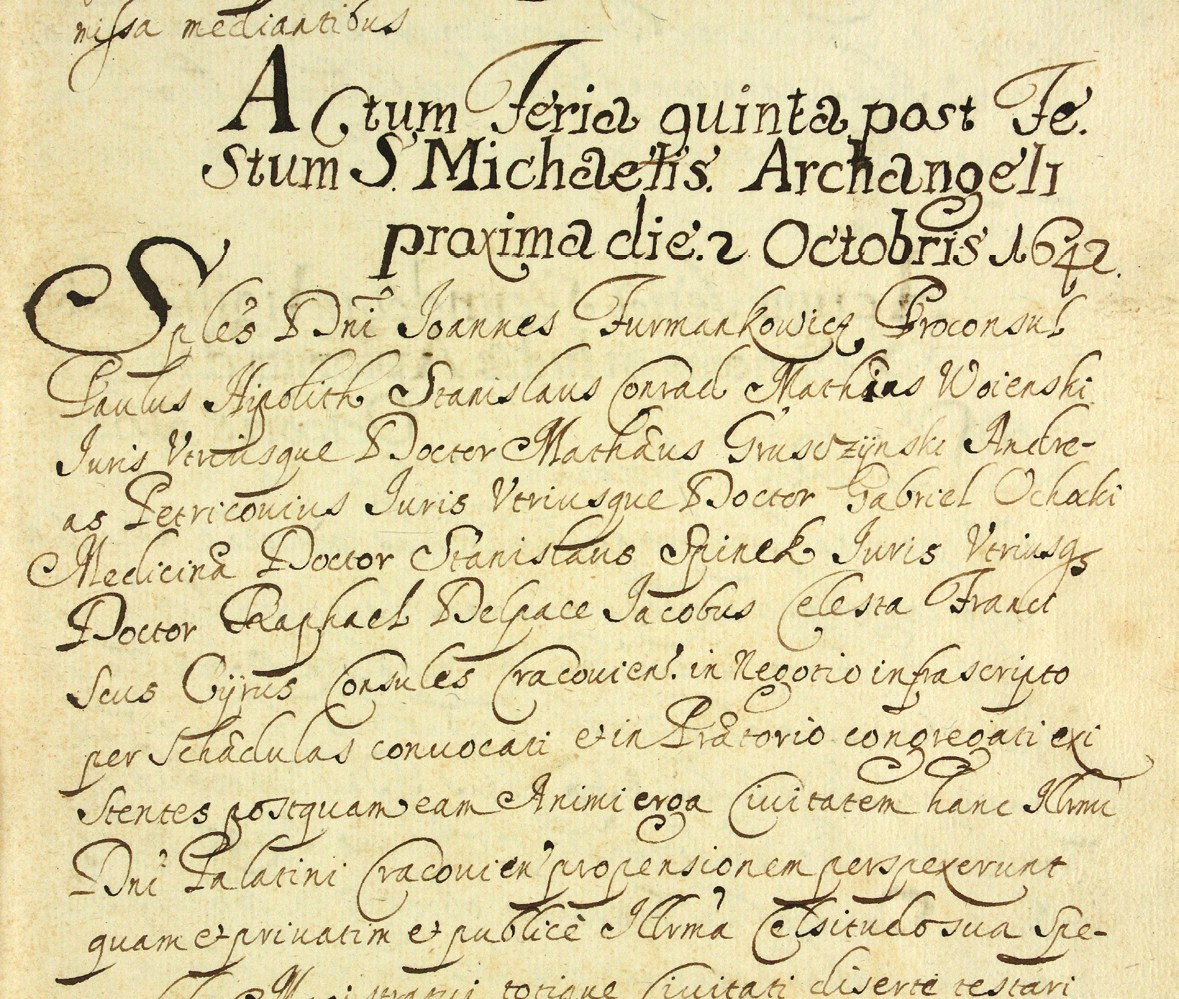 missa mediantibus
Actum Feria quinta post Fe.
stum S. Michaelis. Archangeli
proxima die. 2 Octobris 1642.
Sples Dni Joannes Furmankowicz Proconsul
Paulus Hipolith Stanislaus Conrad Mathias Woienski
Iuris Vtriusque Doctor Mathæus Gruszzÿnski Andre-
as Petriconius Iuris Vtriusque Doctor Gabriel Ochocki
Medicinæ Doctor Stanislaus Spinek Iuris Vtriusqz
Doctor Raphael Delpace Jacobus Celesta Franci
scus Cÿrus Consules Cracouien. in Negotio infrascripto
per Schædulas conuocati et in Prætorio congregati exi
stentes postquam eam Animi erga Ciuitatem hanc Illrmi
Dni Palatini Cracouien propensionem perspexerunt
quam et priuatim et publicè Illrma Celsitudo sua Spe-
Magistratui totique Ciuitati disertè testari